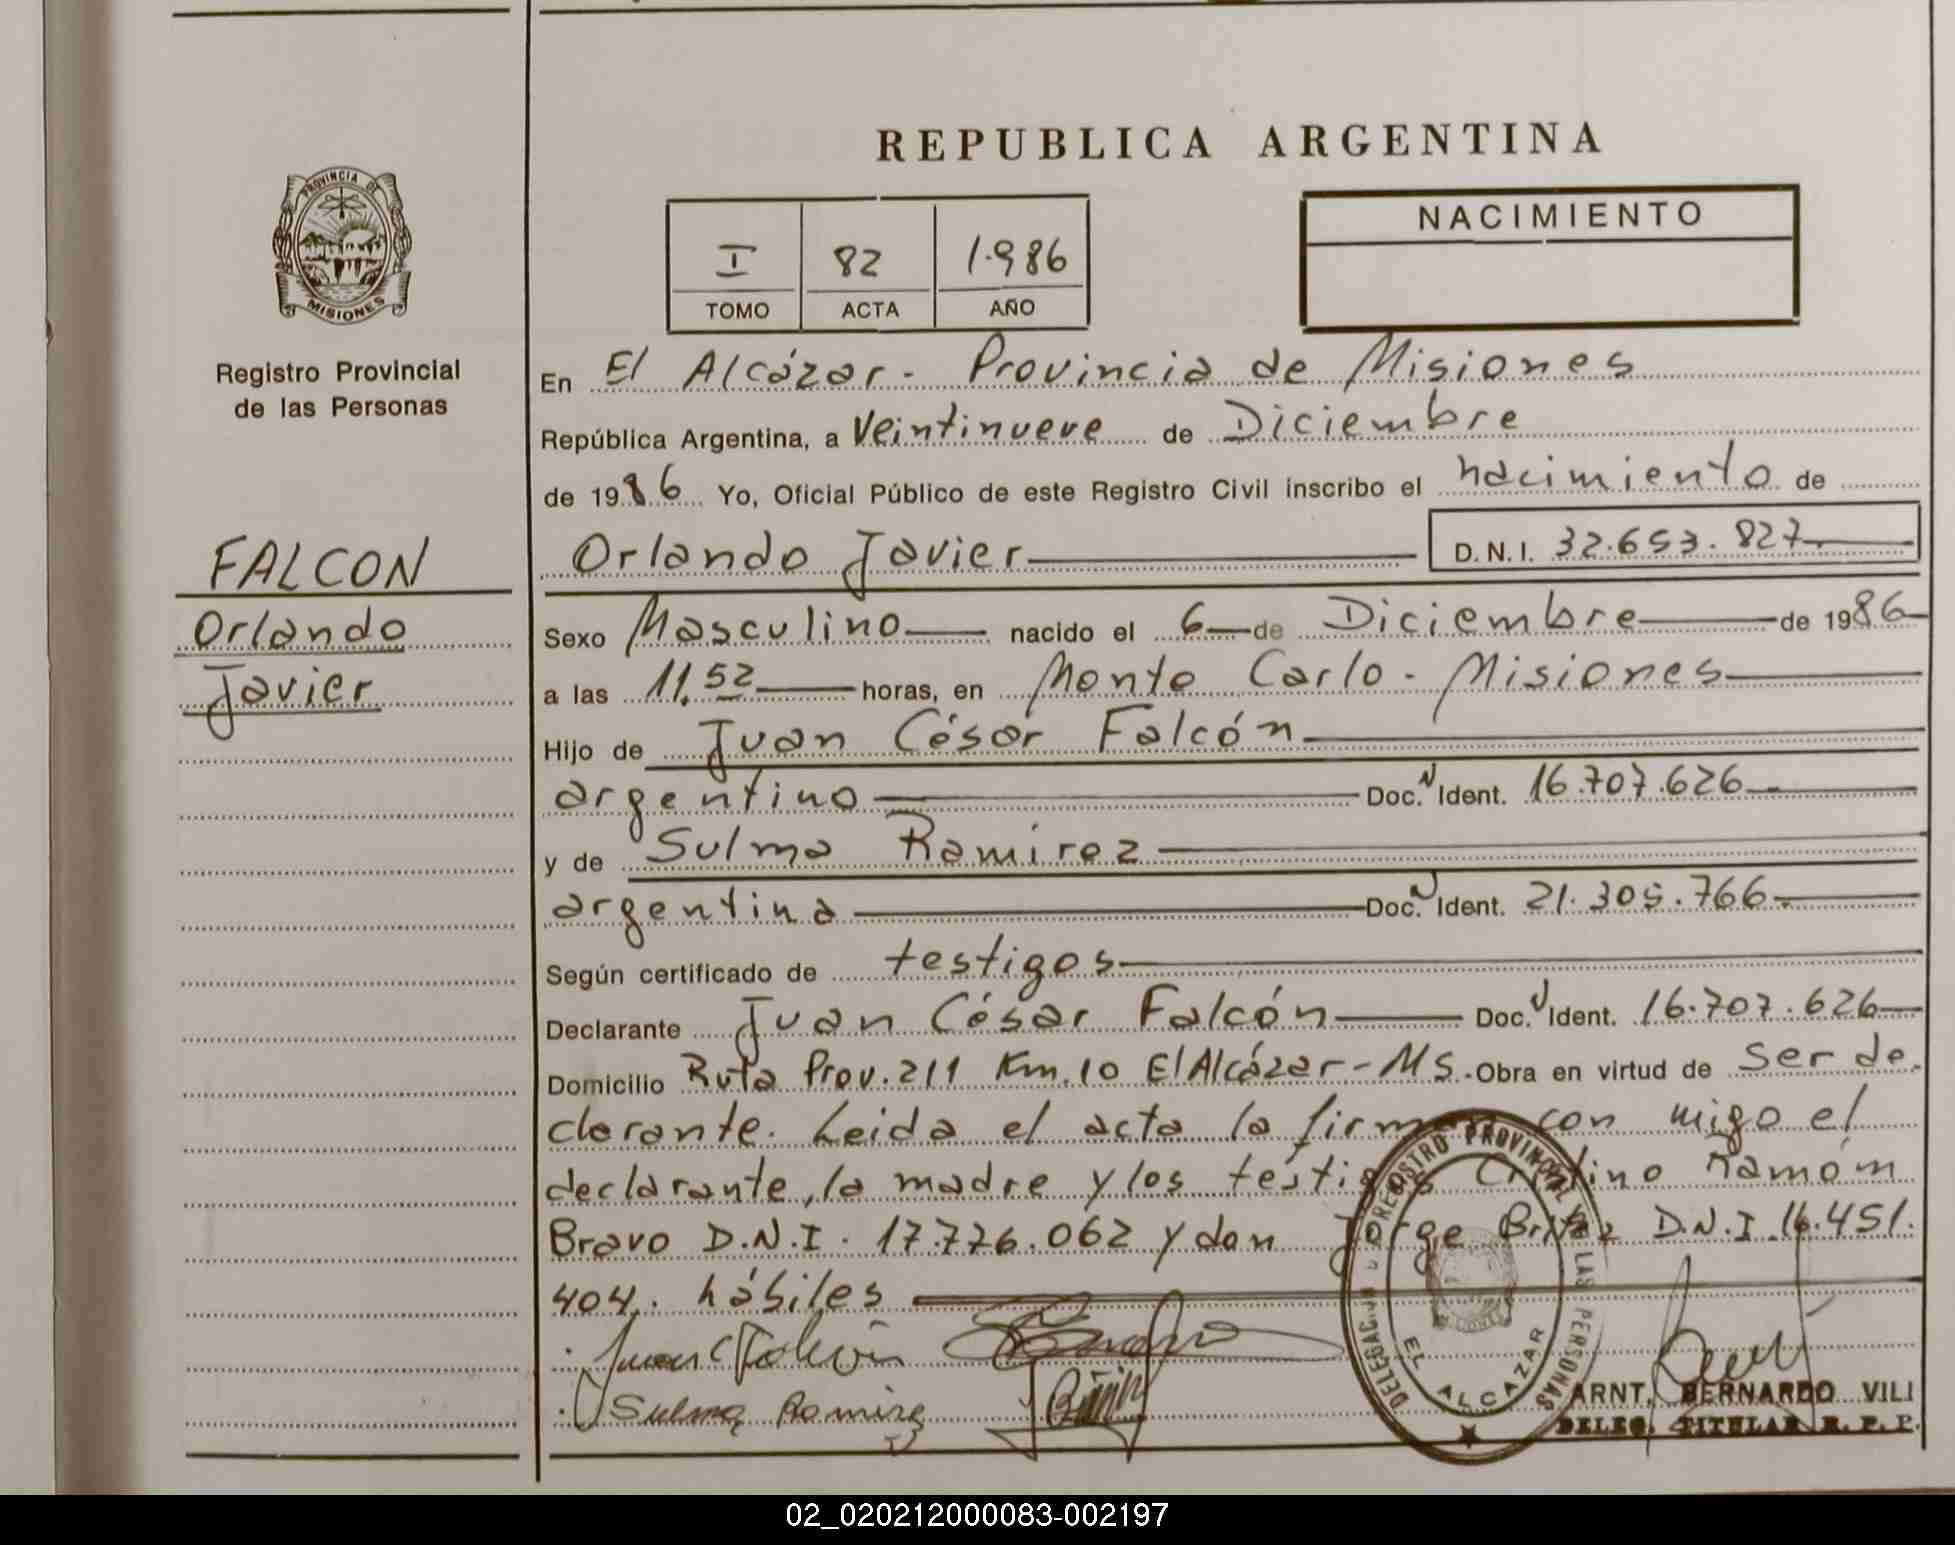 REPUBLICA ARGENTINA
PROVINCIA DE
MISIONES
Registro Provincial
de las Personas
I 82 1.986
TOMO ACTA AÑO
NACIMIENTO
FALCON
Orlando
Javier
En El Alcázar - Provincia de Misiones
República Argentina, a Veintinueve de Diciembre
de 1986 Yo, Oficial Público de este Registro Civil inscribo el nacimiento de
Orlando Javier D.N.I. 32.653.827
Sexo Masculino nacido el 6 de Diciembre de 1986
a las 11,52 horas, en Monte Carlo - Misiones
Hijo de Juan César Falcón
argentino Doc. N Ident. 16.707.626
y de Sulma Ramirez
argentina Doc. N Ident. 21.305.766
Según certificado de testigos
Declarante Juan César Falcón Doc. N Ident. 16.707.626
Domicilio Ruta Prov. 211 Km. 10 El Alcázar - MS. Obra en virtud de Ser de-
clarante. Leida el acta la firman con migo el
declarante, la madre y los testigos Cristino Ramóm
Bravo D.N.I. 17.776.062 y don Jorge Britez D.N.I. 16.451.
404. hábiles
Juan C Falcón
Sulma Ramirez
DELEGACION REGISTRO PROVINCIAL DE LAS PERSONAS
EL ALCAZAR
ARNT, BERNARDO VILI
DELEG. TITULAR R. P. P.
02_020212000083-002197